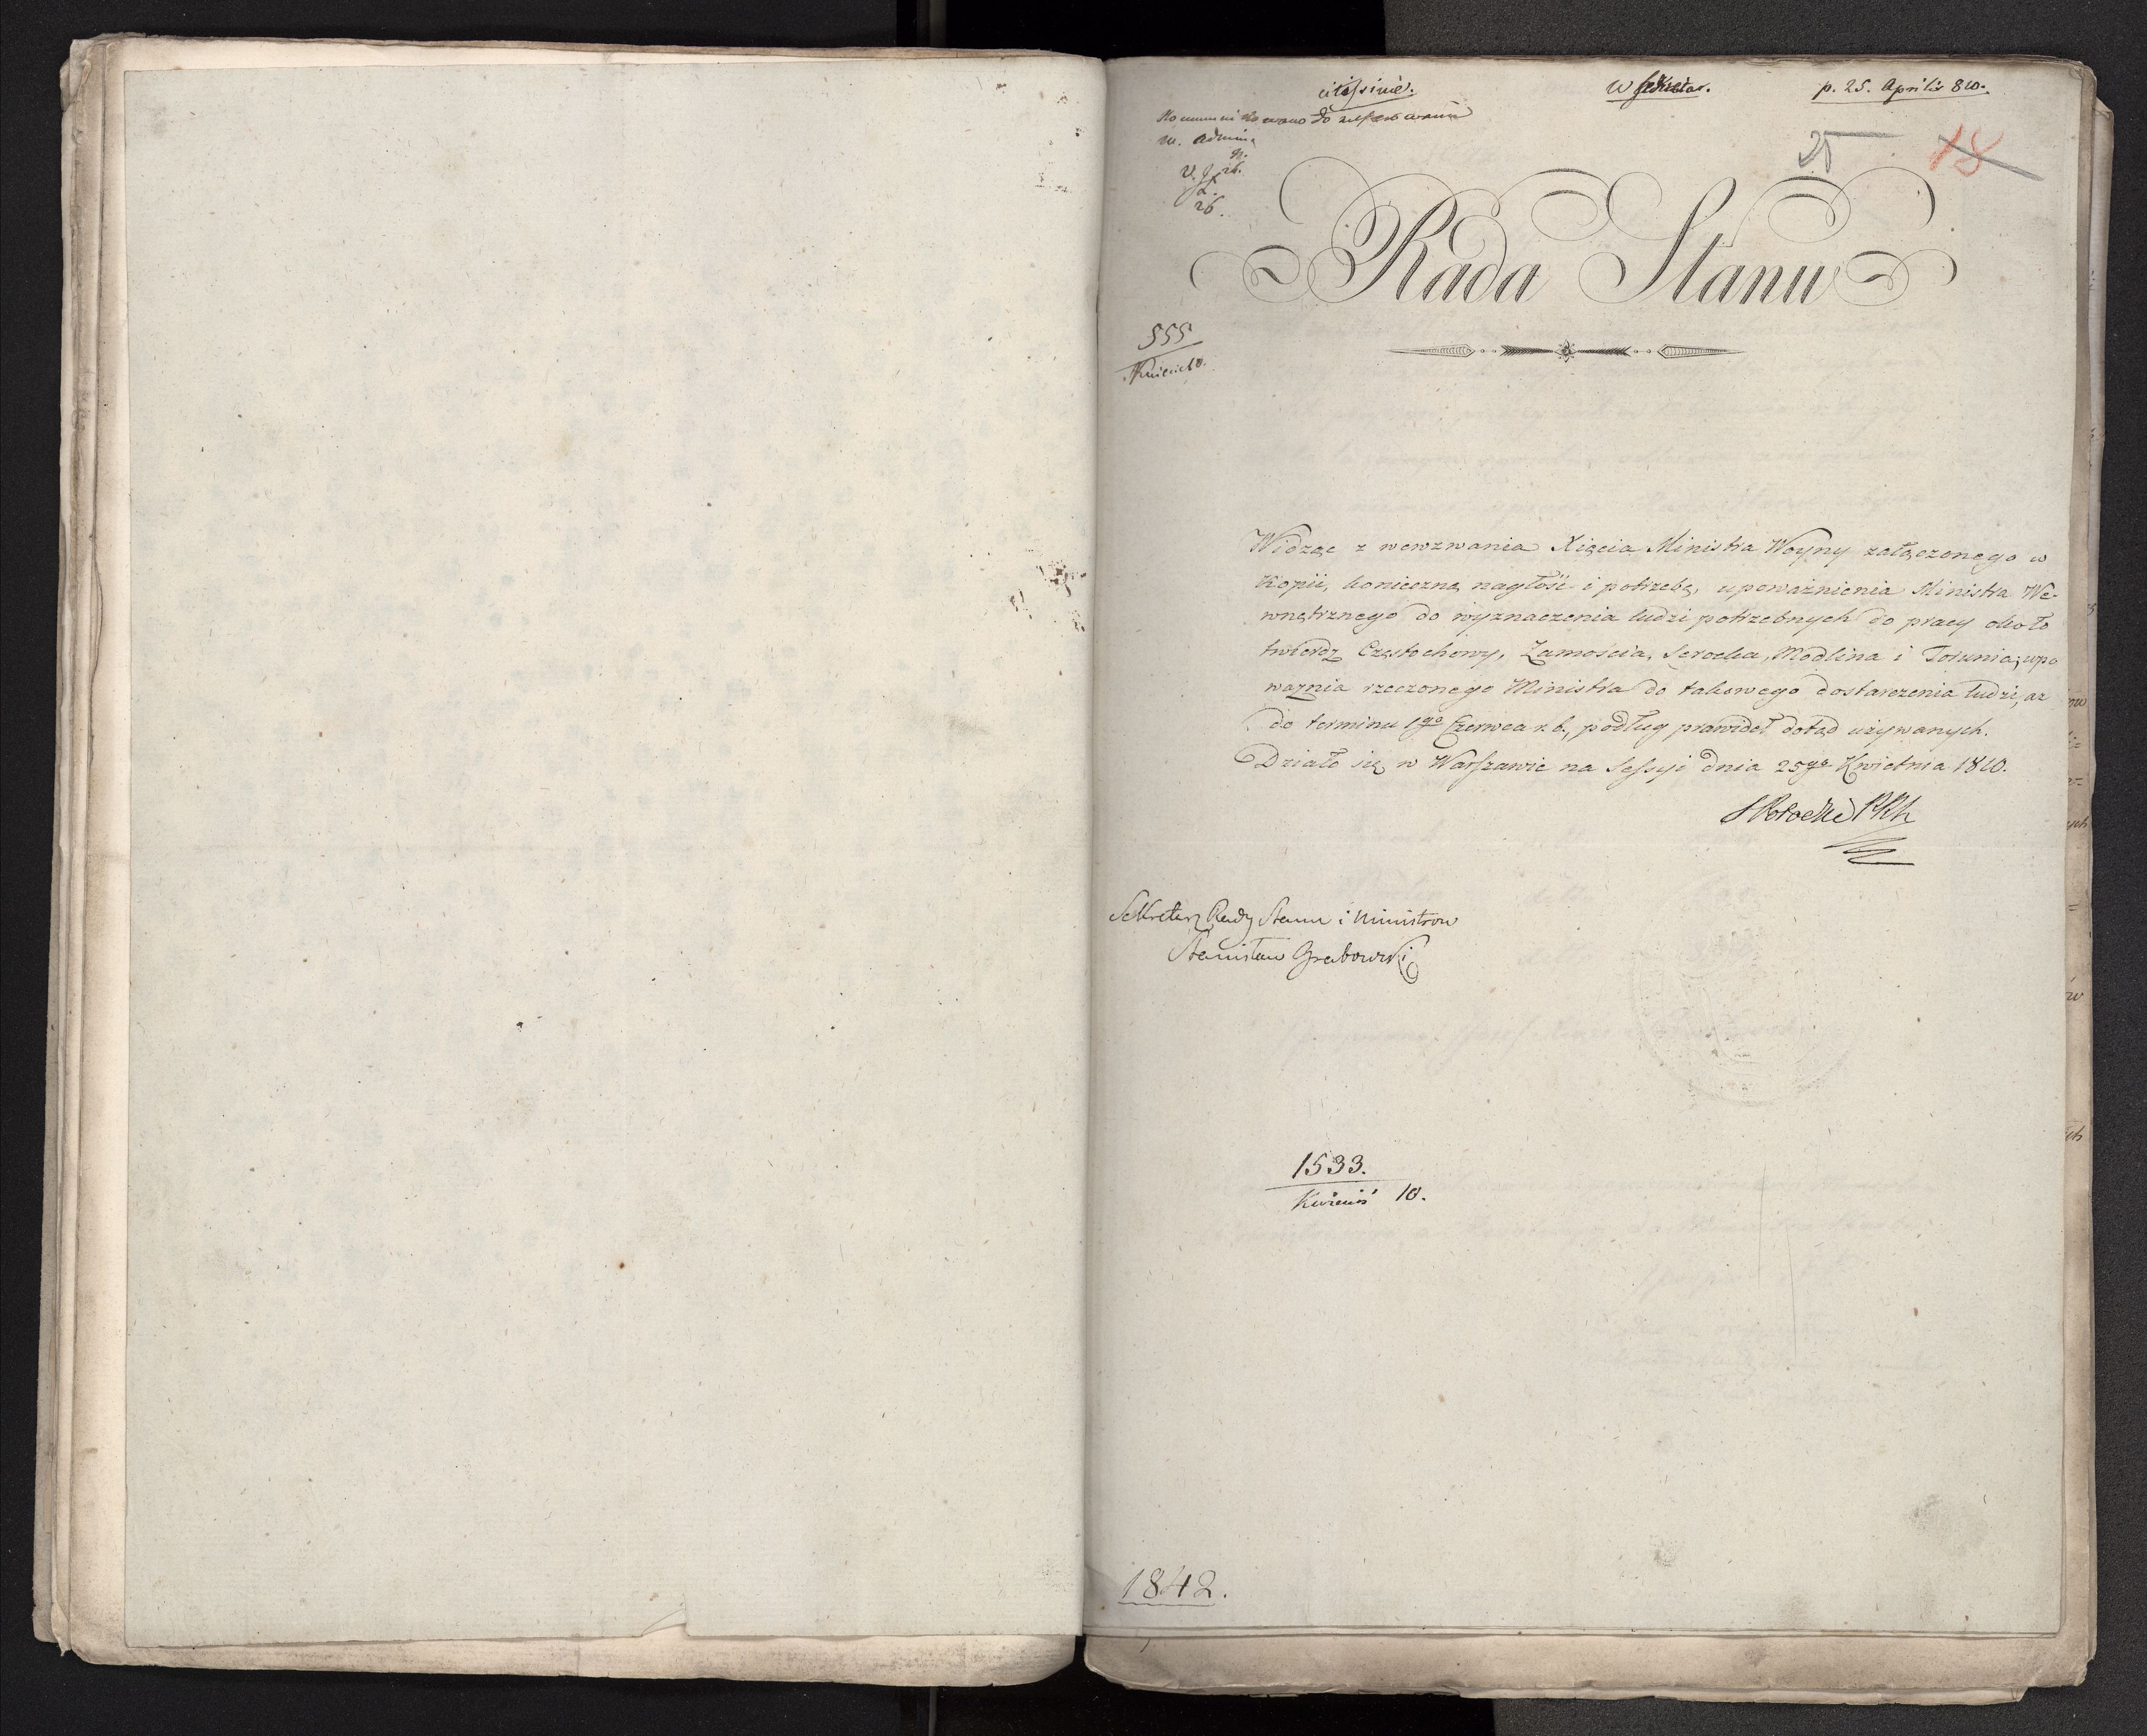 citissime.
W Sekretar.
p. 25. Aprilis 810.
Kommunikowano do
w. Admin.
26.
26.
25
18
Rada Stanu
555
Kwiecień 10.
Widząc z wewzwania Xięcia Ministra Woyny załączonego w
Kopii, konieczną nagłość i potrzebę, upoważnienia Ministra We-
wnętrznego do wyznaczenia ludzi potrzebnych do pracy około
twierdz Częstochowy, Zamościa, Serocka, Modlina i Torunia, upo
ważnia rzeczonego Ministra do takowego dostarczenia ludzi, aż
do terminu 1go Czerwca r. b., podług prawideł dotąd używanych.
Działo się w Warszawie na Sessyi dnia 25go Kwietnia 1810.
S Potocki
Sekretarz Rady Stanu i Ministrow
Stanisław Grabowski
1533.
Kwiecień 10.
1842.